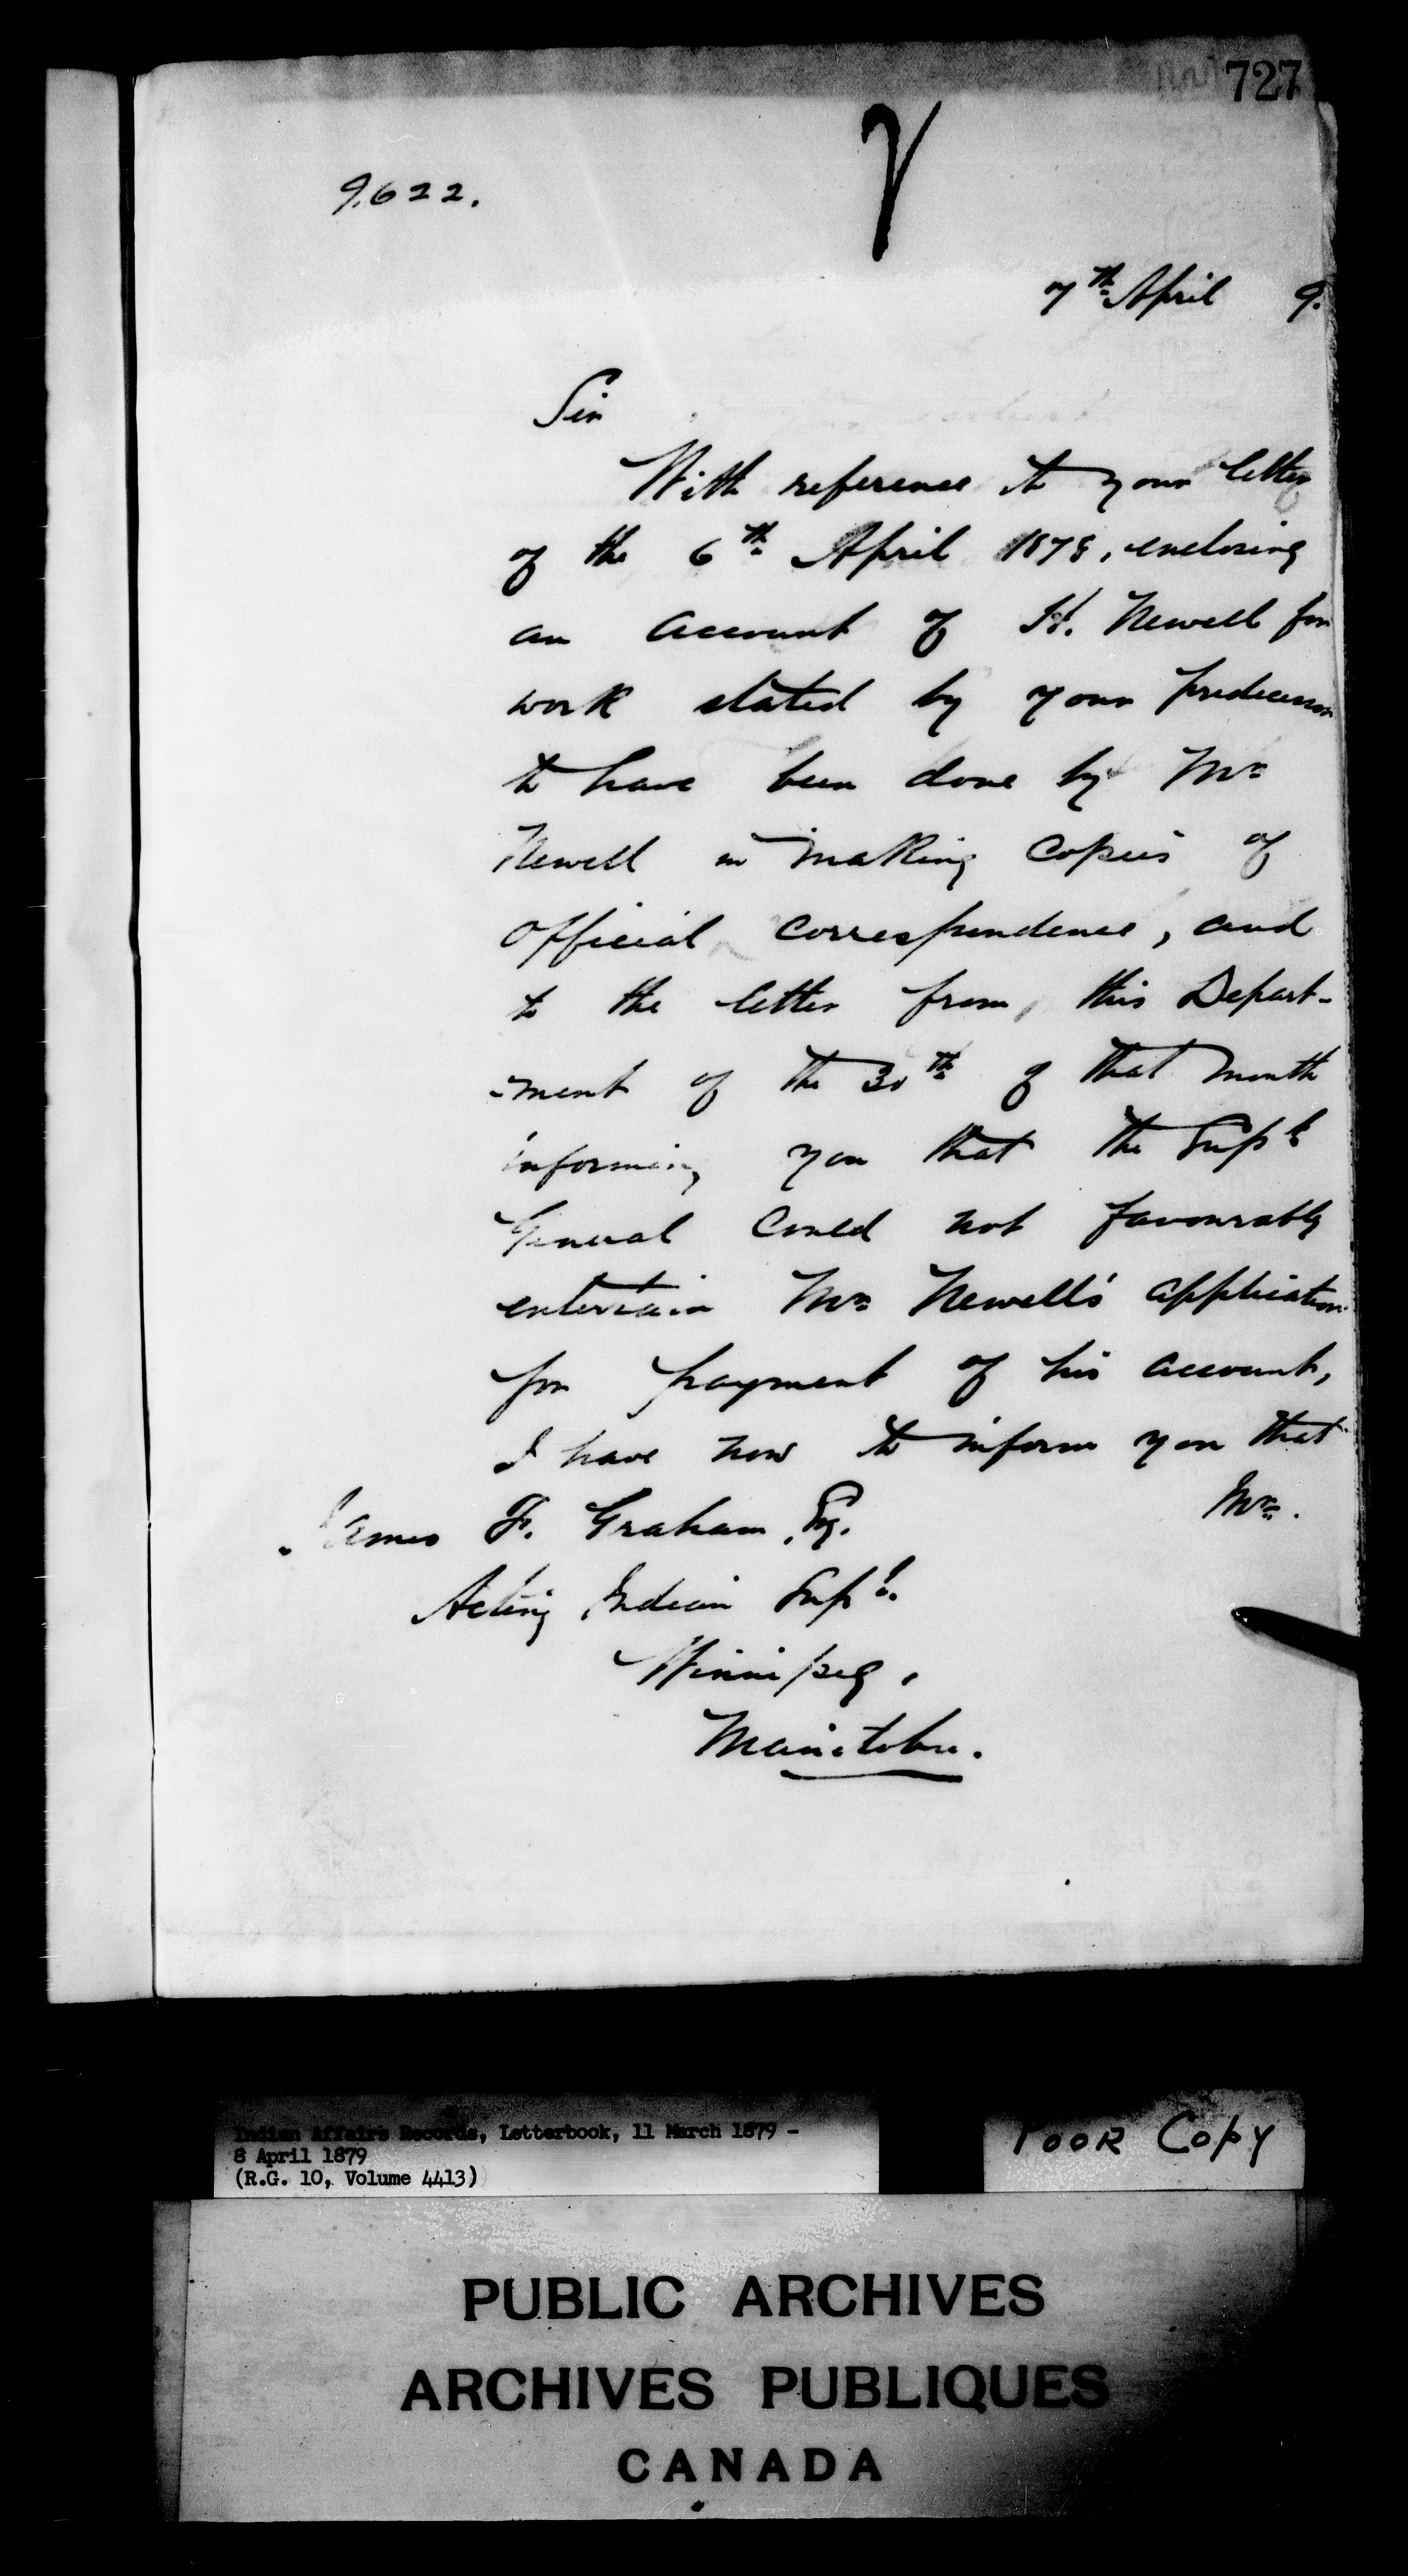 727
9622.
7th April 9.
Sir
With reference to your letter
of the 6th April 1878, enclosing
an account of H. Newell for
work stated by your predecessor
to have been done by Mr
Newell in making copies of
official correspondence, and
to the letter from this Depart-
-ment of the 30th of that month
informing you that the Supt
General could not favourably
entertain Mr Newell's application
for payment of his account,
I have now to inform you that
Mr.
James F. Graham, Esq.
Acting Indian Supt.
Winnipeg,
Manitoba.
Indian Affairs Records, Letterbook, 11 March 1879 -
8 April 1879
(R.G. 10, Volume 4413)
POOR COPY
PUBLIC ARCHIVES
ARCHIVES PUBLIQUES
CANADA